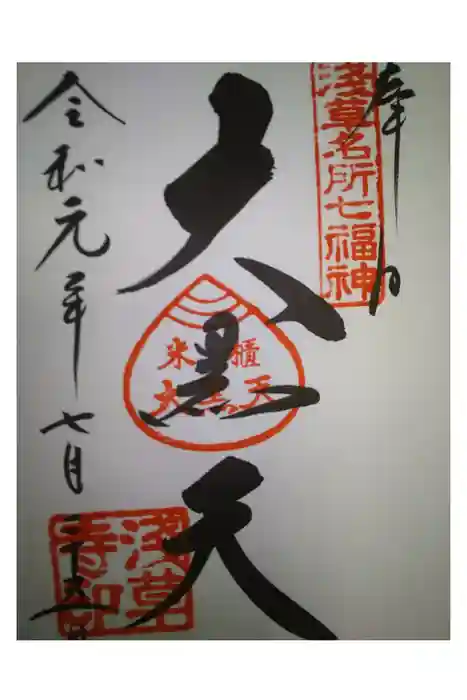 奉拝
淺草名所七福神
大黒天
米櫃
大黒天
令和元年七月二十五日
淺草
寺印